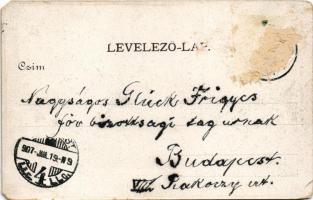 LEVELEZŐ-LAP.
Czim
Nagyságos Glück Frigyes
föv bizottsagi tag urnak
Budapest.
VIII. Rakoczy ut.
907 JUL.19